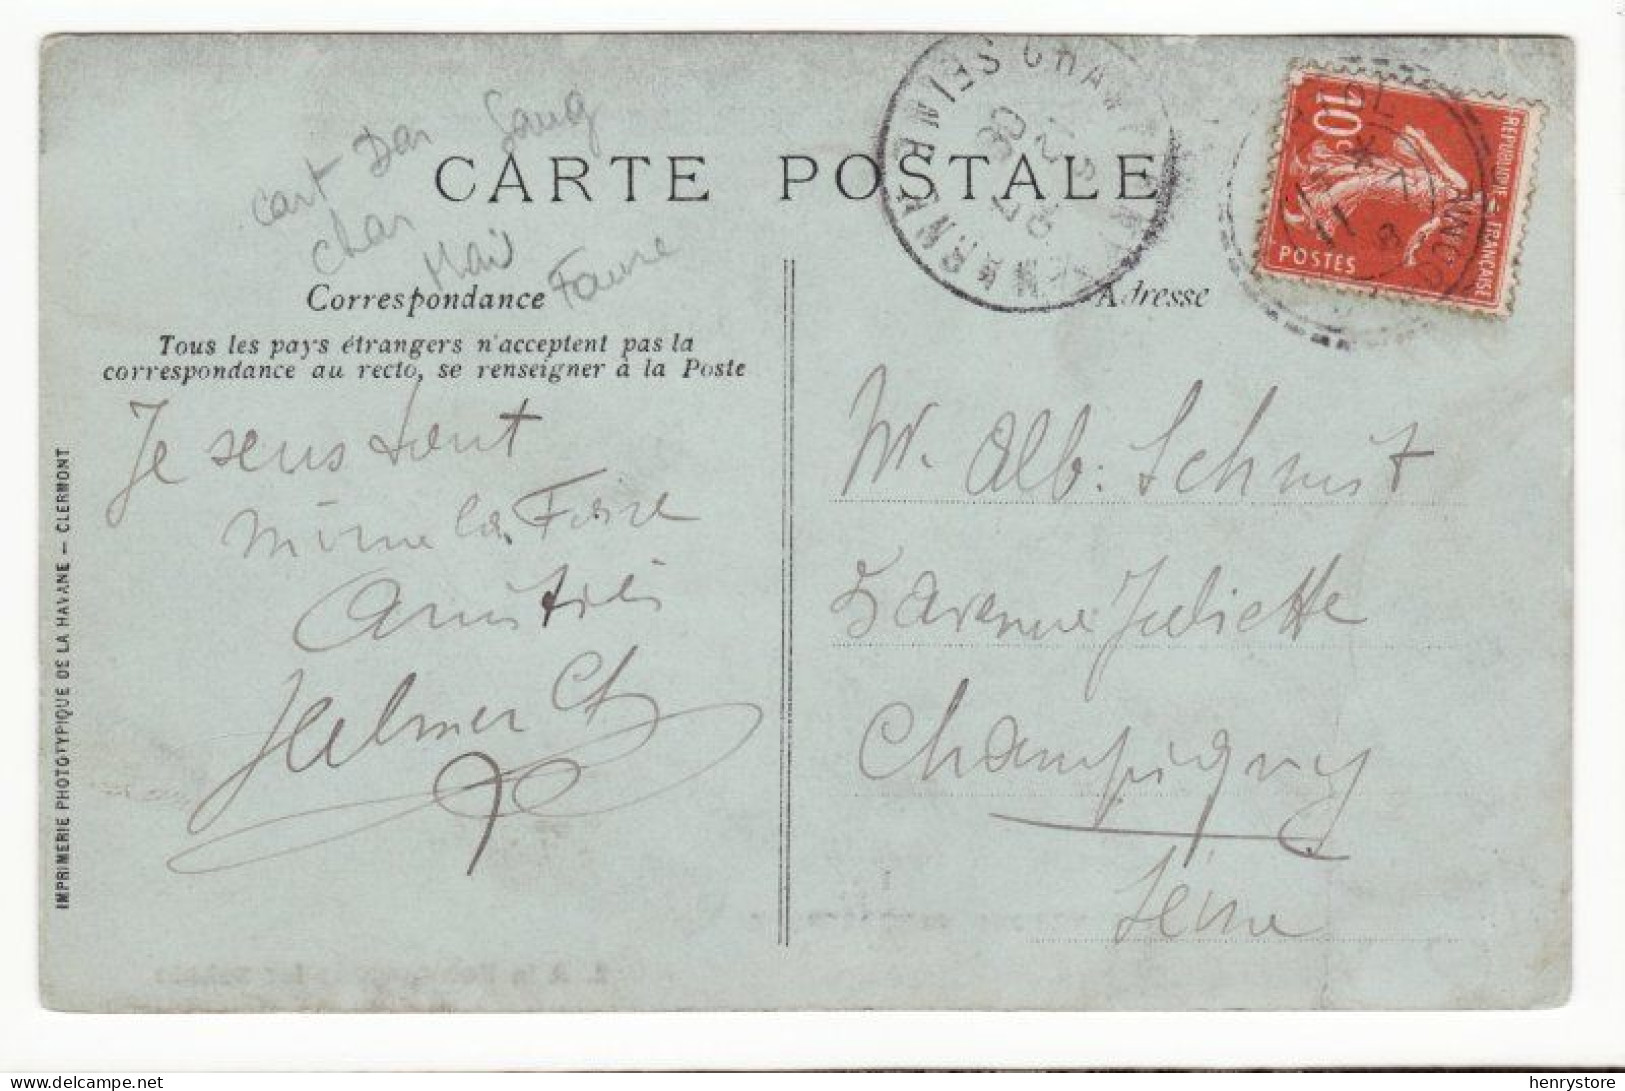 cart Dar Sang
char
Mai
Faure
CARTE POSTALE
Correspondance
Tous les pays étrangers n'acceptent pas la
correspondance au recto, se renseigner à la Poste
Je sens tant
même la
Helmer
IMPRIMERIE PHOTOTYPIQUE DE LA HAVANE – CLERMONT
Adresse
10c
REPUBLIQUE FRANÇAISE
POSTES
M. Alb. Schmit
5 avenue Juliette
Champigny
Seine
henrystore